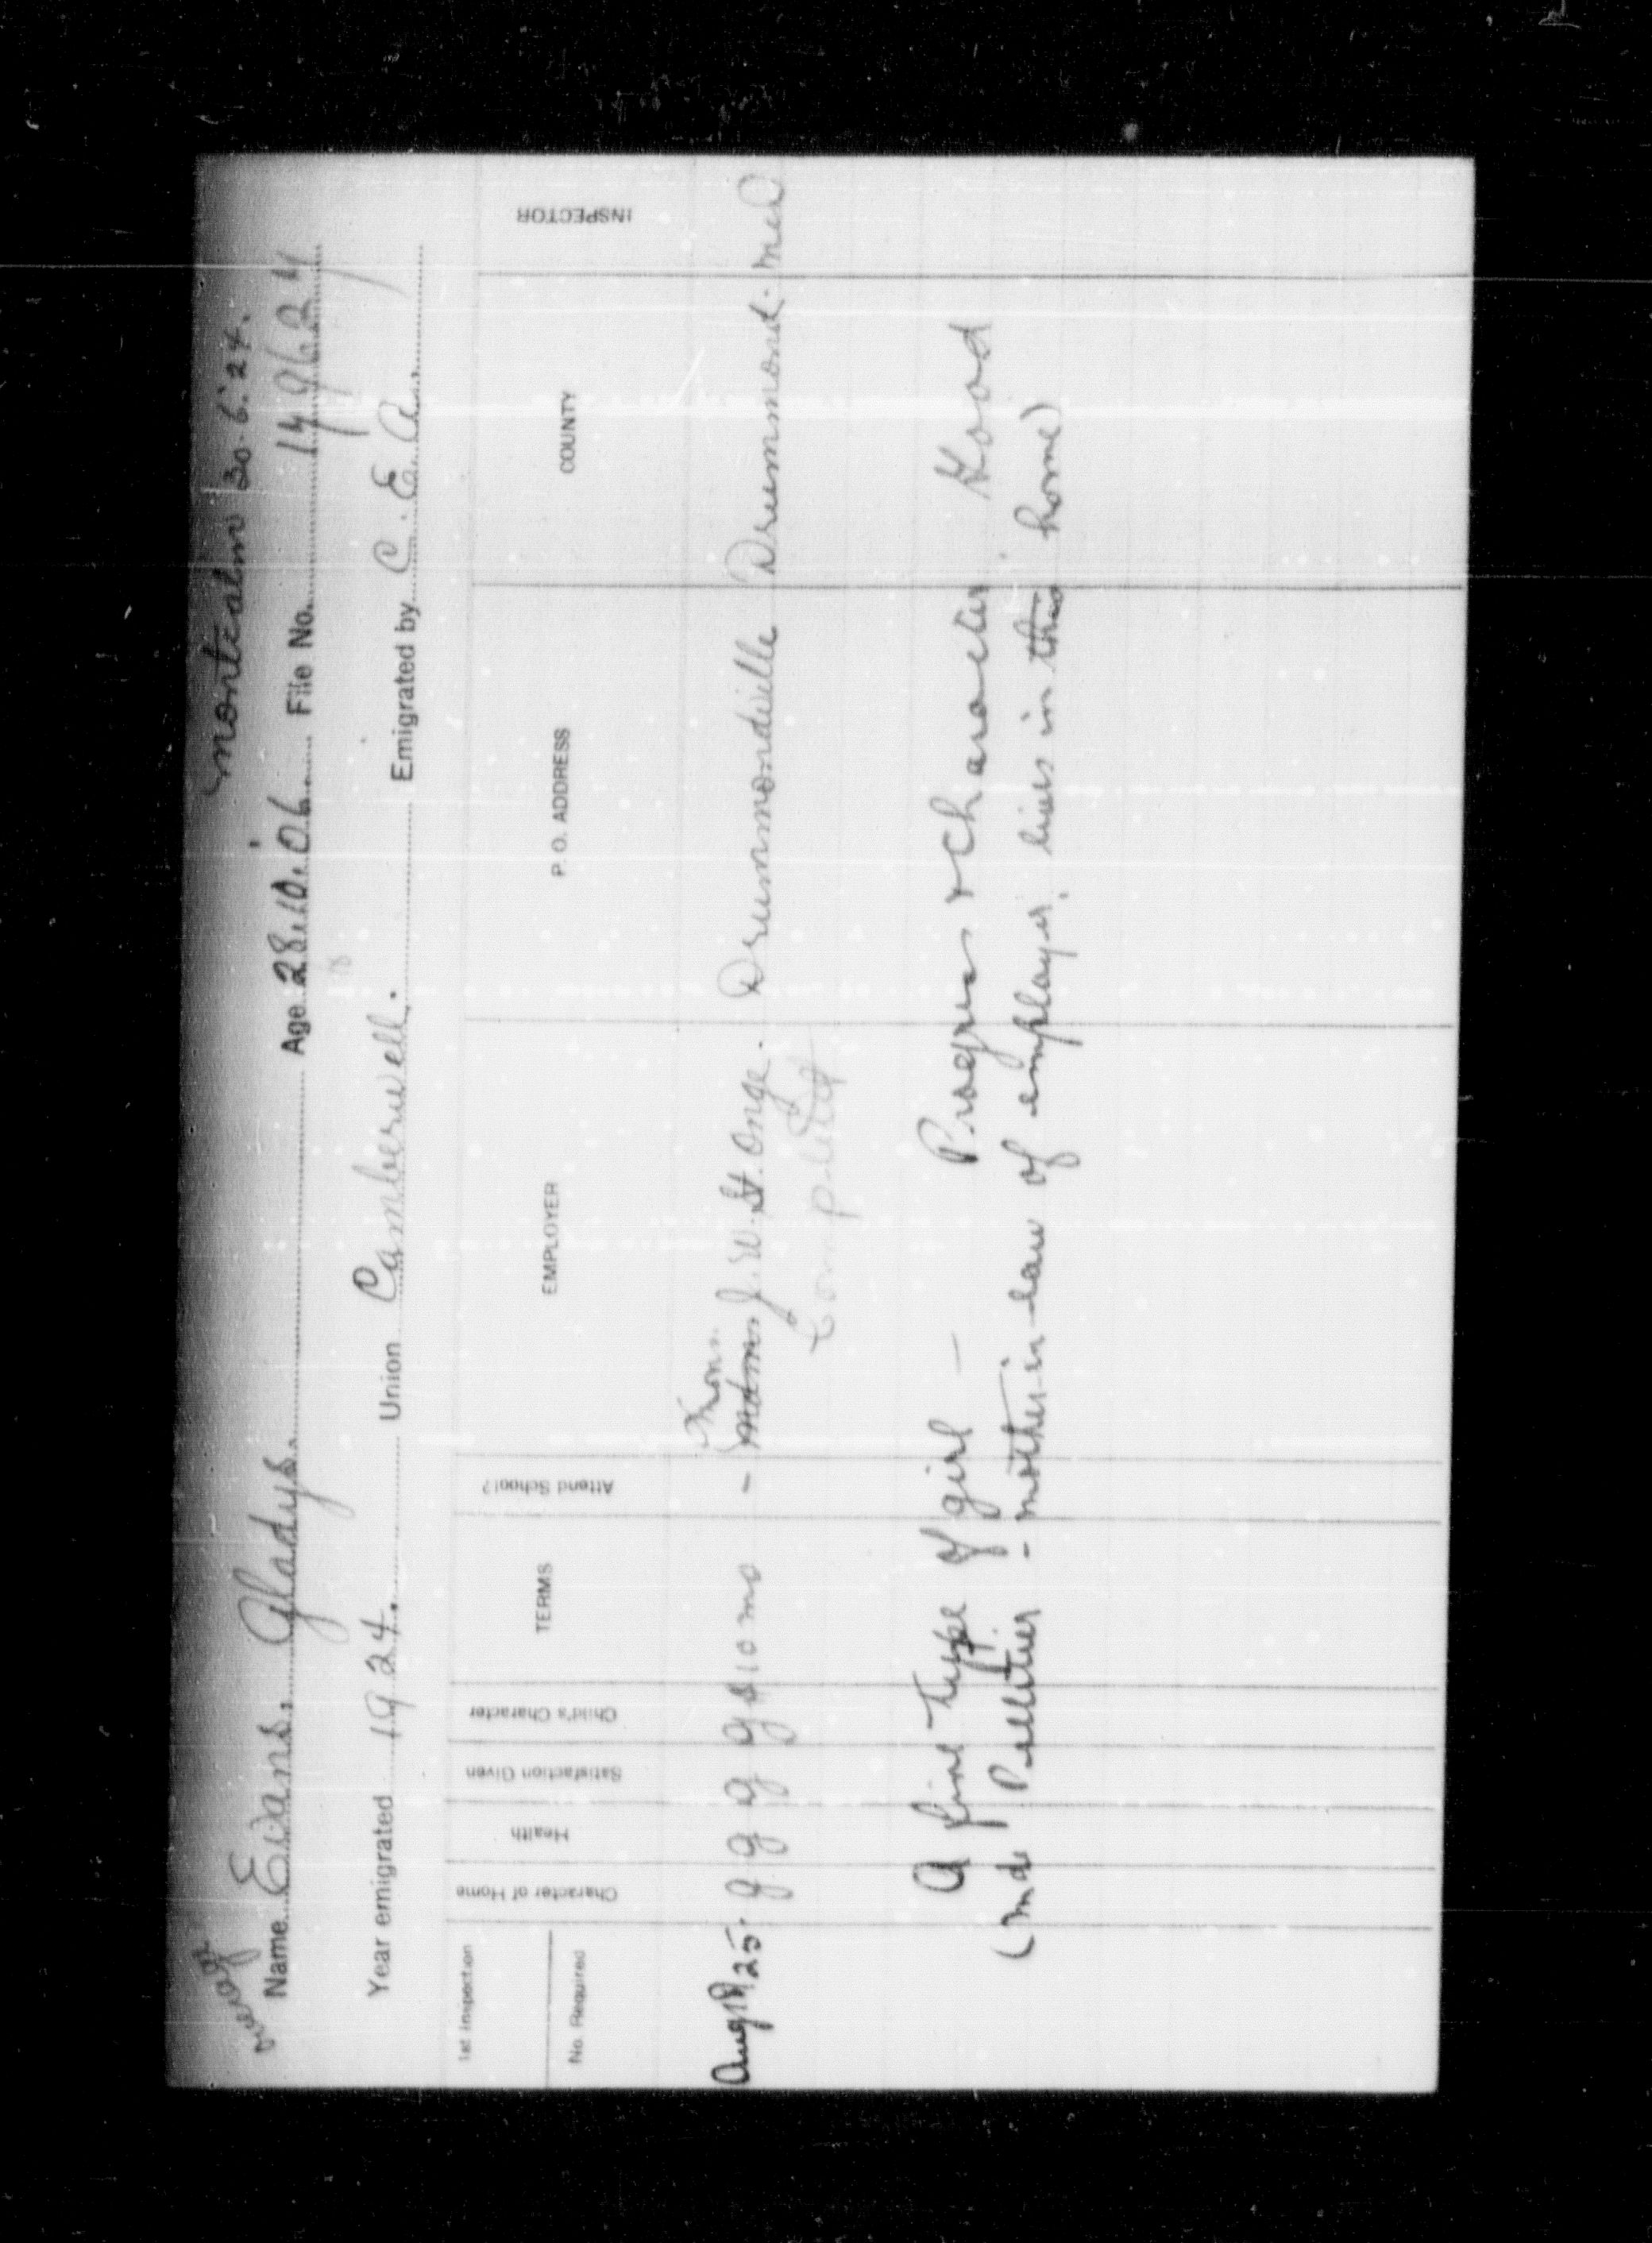 Montcalm 30.6.24.
Name Evans, Gladys. Age 28.10.06. File No. 149624
18
Year emigrated 1924. Union Camberwell. Emigrated by C. E. A.
1st Inspection No. Required Character of Home Health Satisfaction Given Child's Character TERMS Attend School? EMPLOYER P. O. ADDRESS COUNTY INSPECTOR
Hon.
Aug 19, 25. g g g g $10 mo - Mdm J. W. St. Onge. Drummondville Drummond.
Completed
A fine type of girl - Progress & Character Good
(Mde Pelletier - mother-in-law of employer, lives in this home)